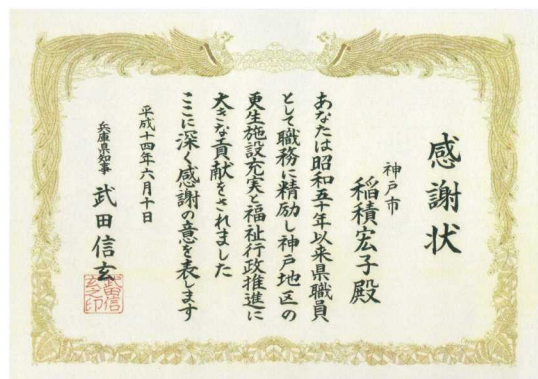 感謝状
神戸市
稲積宏子殿
あなたは昭和五十年以来県職員
として職務に精励し神戸地区の
更生施設充実と福祉行政推進に
大きな貢献をされました
ここに深く感謝の意を表します
平成十四年六月十日
兵庫県知事 武田信玄
武田信
玄之印